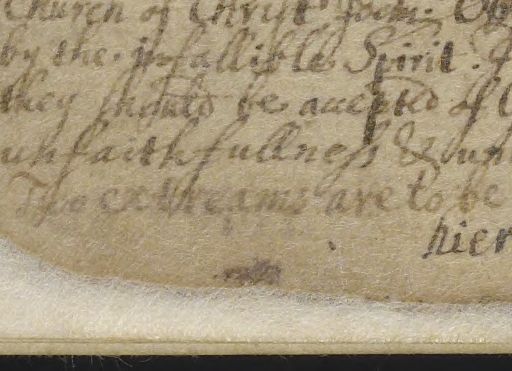 Church of Christ from. Ob
by the infallible Spirit.
they should be accepted of
unfaithfullness & un
Two extreams are to be
hier